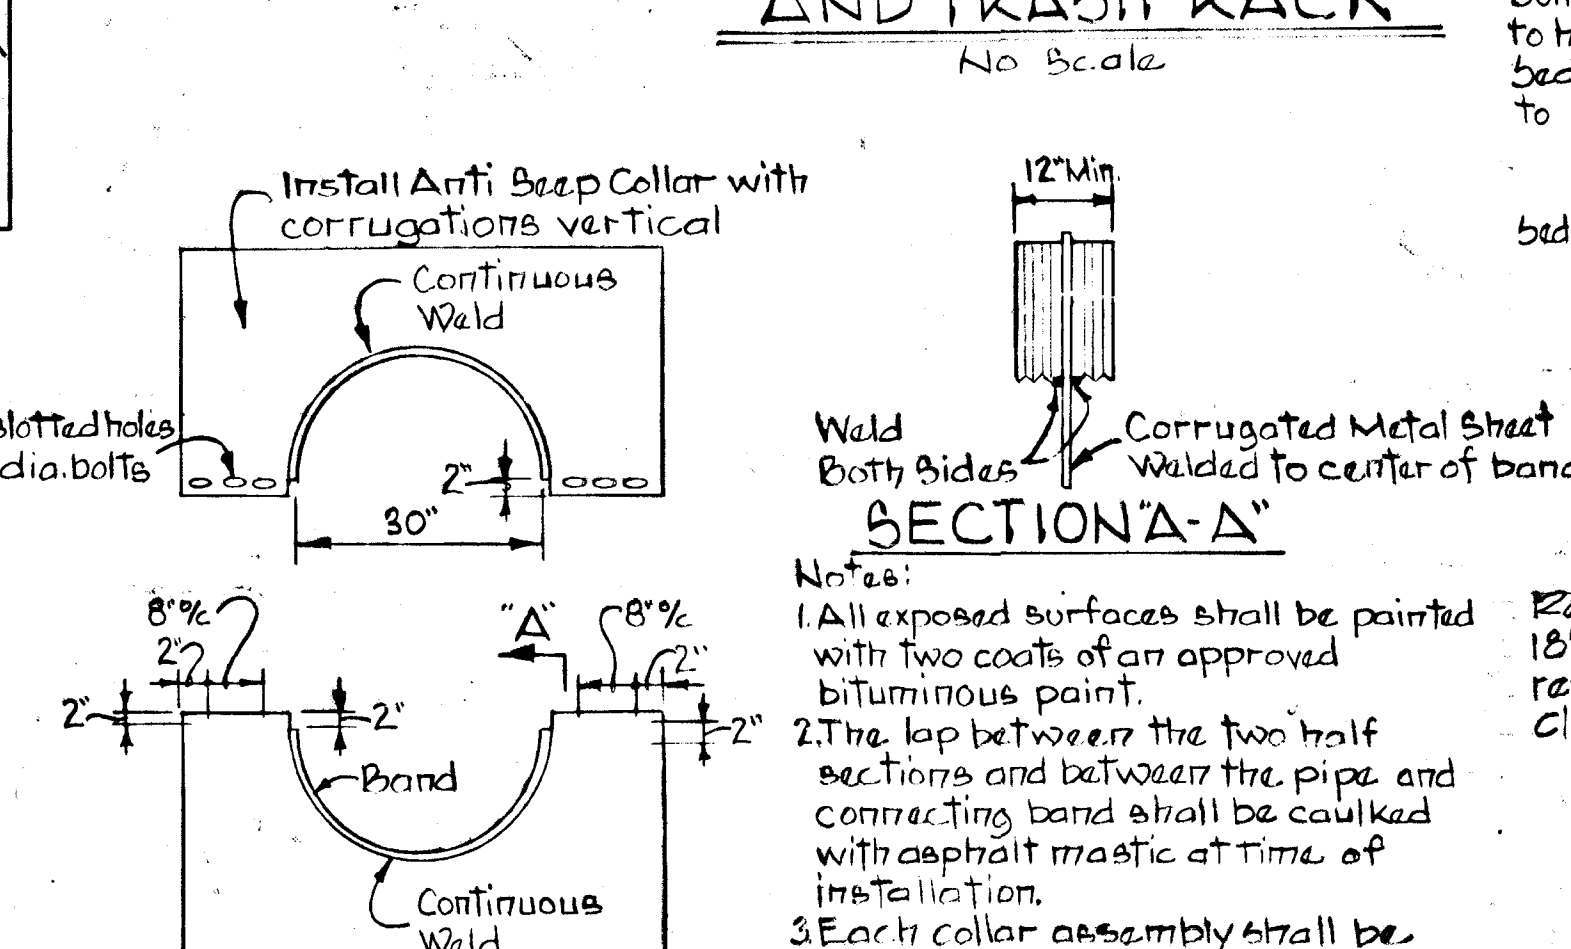 AND TRASH RACK
No Scale
to
bed
Install Anti Seep Collar with
corrugations vertical
Continuous
Weld
slotted holes
dia. bolts
2"
30"
12" Min.
Weld
Both Sides
Corrugated Metal Sheet
Welded to center of band
SECTION "A-A"
8" o/c
2"
2"
2"
"A"
8" o/c
2"
2"
Band
Continuous
Weld
Notes:
1. All exposed surfaces shall be painted
with two coats of an approved
bituminous paint.
2. The lap between the two half
sections and between the pipe and
connecting band shall be caulked
with asphalt mastic at time of
installation.
3. Each collar assembly shall be
18"